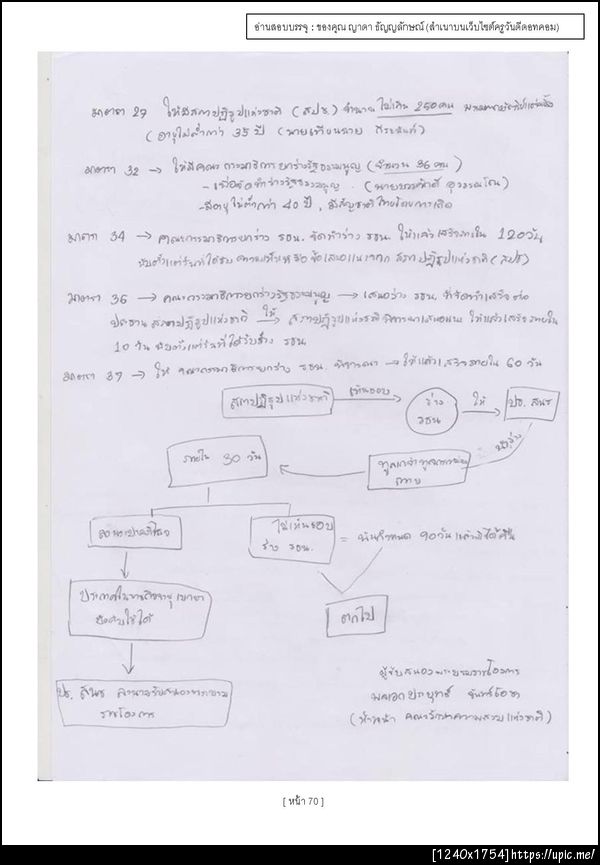 อ่านสอบบรรจุ : ของคุณ ญาดา ธัญญลักษณ์ (สำเนาบนเว็บไซต์ครูวันดีดอทคอม)
มาตรา 27 ให้มีสภาปฏิรูปแห่งชาติ (สปช) จำนวน ไม่เกิน 250 คน
(อายุไม่ต่ำกว่า 35 ปี (นายเทียนฉาย กีระนันท์)
มาตรา 32 → ให้มีคณะกรรมาธิการยกร่างรัฐธรรมนูญ (จำนวน 36 คน)
- เพื่อจัดทำร่างรัฐธรรมนูญ. (นายบวรศักดิ์ อุวรรณโณ)
- มีอายุไม่ต่ำกว่า 40 ปี, มีสัญชาติไทยโดยการเกิด
มาตรา 34 → คณะกรรมาธิการยกร่าง รธน. จัดทำร่าง รธน. ให้แล้วเสร็จภายใน 120 วัน
นับตั้งแต่วันที่ได้รับความเห็นหรือข้อเสนอแนะจาก สภาปฏิรูปแห่งชาติ (สปช)
มาตรา 36 → คณะกรรมาธิการยกร่างรัฐธรรมนูญ → เสนอร่าง รธน. ที่จัดทำเสร็จต่อ
ประธานสภาปฏิรูปแห่งชาติ ให้ → สภาปฏิรูปแห่งชาติพิจารณาเสนอแนะ ให้แล้วเสร็จภายใน
10 วัน นับตั้งแต่วันที่ได้รับร่าง รธน.
มาตรา 37 → ให้ คณะกรรมาธิการยกร่าง รธน. พิจารณา → ให้แล้วเสร็จภายใน 60 วัน
สภาปฏิรูปแห่งชาติ เห็นชอบ ร่าง รธน ให้ ปธ. สนช
นำร่าง
ภายใน 30 วัน ทูลเกล้าทูลกระหม่อม
ถวาย
ลงพระปรมาภิไธย ไม่เห็นชอบ
ร่าง รธน. = พ้นกำหนด 90 วันแล้วมิได้คืน
ประกาศในราชกิจจานุเบกษา
บังคับใช้ได้ ตกไป
ปธ. สนช ลงนามรับสนองพระบรม
ราชโองการ
ผู้รับสนองพระบรมราชโองการ
พลเอกประยุทธ์ จันทร์โอชา
(หัวหน้า คณะรักษาความสงบแห่งชาติ)
[ หน้า 70 ]
[1240x1754]https://upic.me/